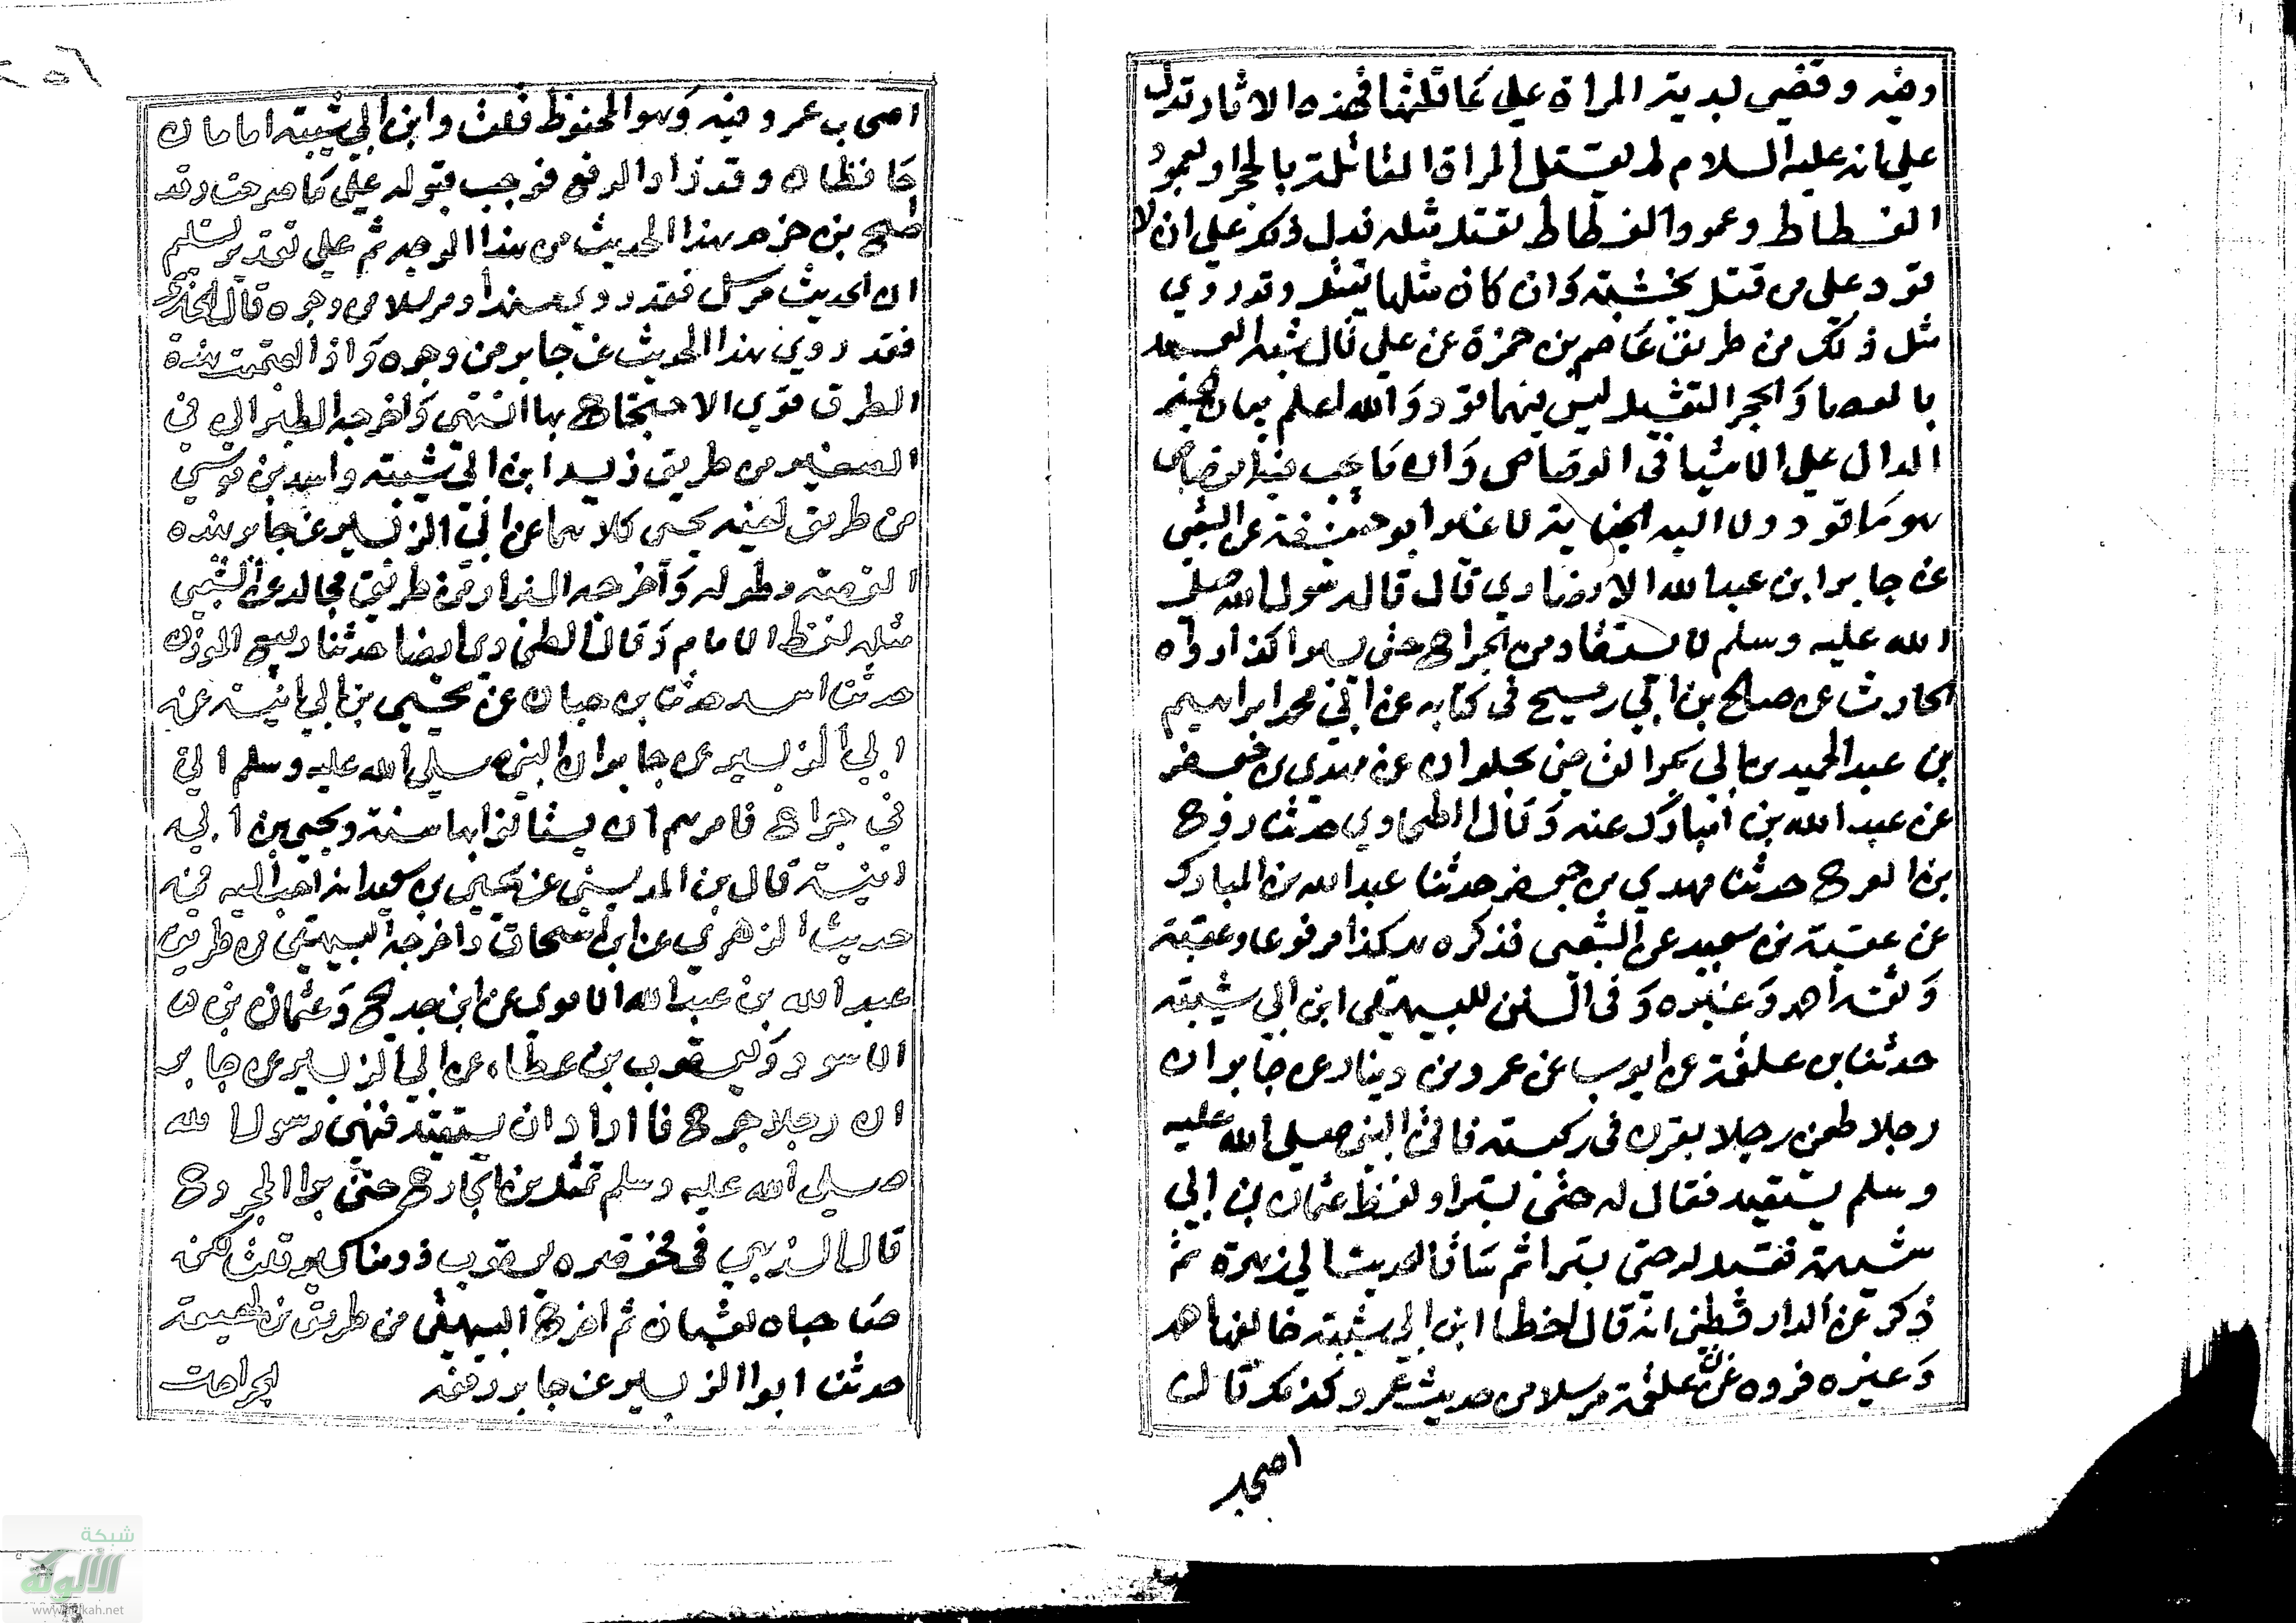 وفيه وقضي لدية المراة علي عاقلتها فهذه الاثار تدل
علي انه عليه السلام لم يقتل المراة القاتلة بالحجر او بعمود
الفسطاط وعمود الفسطاط يقتل مثله فدل ذلك علي ان لا
قود علي من قتل بخشبة وان كان مثلها يقتل وقد روي
مثل ذلك من طريق عاصم بن حمزة عن علي قال شبه العمد
بالعصا والحجر الثقيل ليس فيهما قود والله اعلم بيان الخبر
الدال علي الاشيا في القصاص وان ما يجب فيه القصاص
هو ما قود ولا اليه الجناية لا غير ابو حنيفة عن الشعبي
عن جابر ابن عبد الله الانصاري قال قال رسول الله صلي
الله عليه وسلم لا يستقاد من الجراح حتى يبرا كذا رواه
الحارث عن صالح بن ابي رميح في كتابه عن ابي محمد ابراهيم
بن عبد الحميد من ابي بكر القاضي بحلوان عن مهدي بن جعفر
عن عبد الله بن المبارك عنه وقال الطحاوي حدثنا روح
بن الفرج حدثنا مهدي بن جعفر حدثنا عبد الله بن المبارك
عن عقبة بن سعيد عن الشعبى فذكره هكذا مرفوعا وعقبة
وثقه احمد وغيره وفي السنن للبيهقى ابن ابي شيبة
حدثنا بن علقة عن ايوب عن عمرو بن دينار عن جابر ان
رجلا طعن رجلا بقرن في ركبته فاتى النبي صلي الله عليه
وسلم يستقيد فقال له حتى يبترا ولفظ عثمان بن ابي
شيبة فقيل له حتى يبترا ثم ساق الحديث الي زهرة ثم
ذكر عن الدار قطني انه قال اخطا ابن ابي شيبة خالفه احمد
وغيره فروه عن علقة مرسلا من حديث عمرو كذلك قال
اصحاب
اصحاب عمرو فيه وهو المحفوظ قلت وابن ابي شيبة امامان
حافظان وقد زاد الرفع فوجب قبوله علي ما صرحت وقد
صحح بن حزم هذا الحديث من هذا الوجه ثم علي تقدير تسليم
ان الحديث مرسل فقد روي مسندا ومرسلا من وجوه قال الحازمي
فقد روي هذا الحديث عن جابر من وجوه واذا اجتمعت هذه
الطرق قوي الاحتجاج بها انتهى واخرجه الطبراني في
الصغير من طريق زيد ابن ابي شيبة واسد بن موسي
من طريق يحيى كلاهما عن ابي الزبير عن جابر هذه
القصة وطوله واخرجه البزار من طريق مجالد عن الشعبي
مثله لفظ الامام وقال الطحاوي ايضا حدثنا ربيع الموذن
حدثنا اسد حدثنا بن حبان عن يحيى بن ابي انيسة عن
ابي الزبير عن جابر ان النبي صلي الله عليه وسلم اتي
في جراح فامرهم ان يستانوا بها سنة ويحيى بن ابي
انيسة قال بن المديني عن يحيى بن سعيد انه احب اليه في
حديث الزهري عن ابن اسحاق واخرجه البيهقي من طريق
عبد الله بن عبد الله الاموي عن ابن جريج وعثمان بن
الاسود ويعقوب بن عطاء عن ابي الزبير عن جابر
ان رجلا جرح فاراد ان يستقيد فنهى رسول الله
صلي الله عليه وسلم تمثل من الجارح حتى يبرا المجروح
قال الذهبي في مختصره يعقوب ذو مناكير قلت لكنه
صاحباه ثقتان ثم اخرج البيهقى من طريق بن لهيعة
حدثنا ابوا الزبير عن جابر رفعه الجراحات